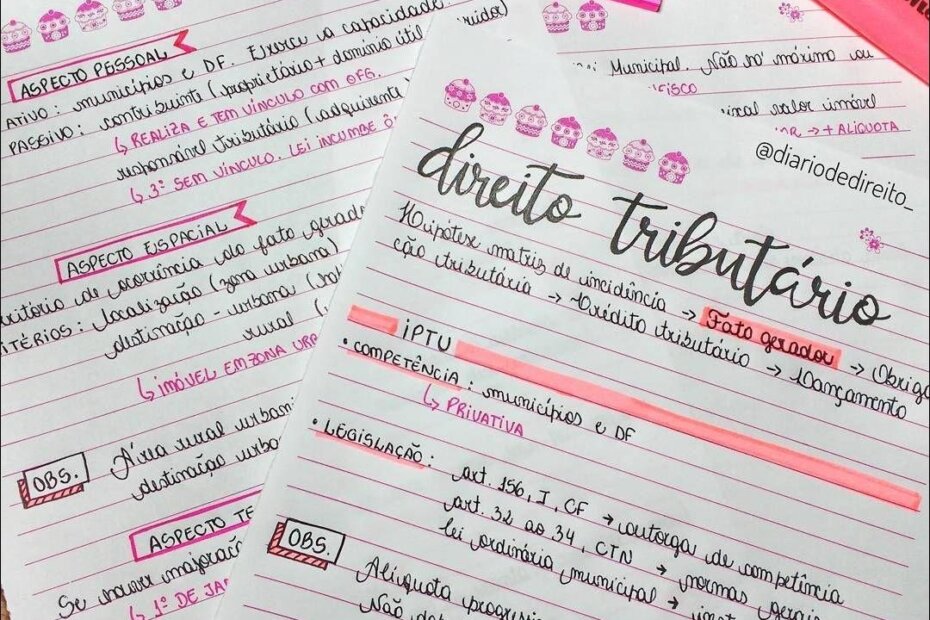 ASPECTO PESSOAL
ATIVO: municípios e DF. Exerce a capacidade
PASSIVO: contribuinte (proprietário + domínio útil
↳ REALIZA E TEM VÍNCULO COM OFG.
responsável tributário (adquirente
↳ 3º SEM VÍNCULO. LEI INCUMBE
ASPECTO ESPACIAL
de ocorrência do fato gerado
CRITÉRIOS: localização (zona urbana)
destinação - urbana
rural
↳ IMÓVEL EM ZONA
OBS.
Área rural
destinação
ASPECTO TE
Se houver majoração
↳ 1º DE JA
Municipal. Não no máximo ou
valor imóvel
→ + ALIQUOTA
@diariodedireito_
direito tributário
Hipótese matriz de incidência → Fato gerador → Obriga
ção tributária → Crédito tributário → Lançamento
IPTU
• COMPETÊNCIA: municípios e DF
↳ PRIVATIVA
• LEGISLAÇÃO:
art. 156, I, CF → outorga de competência
art. 32 ao 34, CTN → normas gerais
lei ordinária municipal →
OBS.
Alíquota
Não